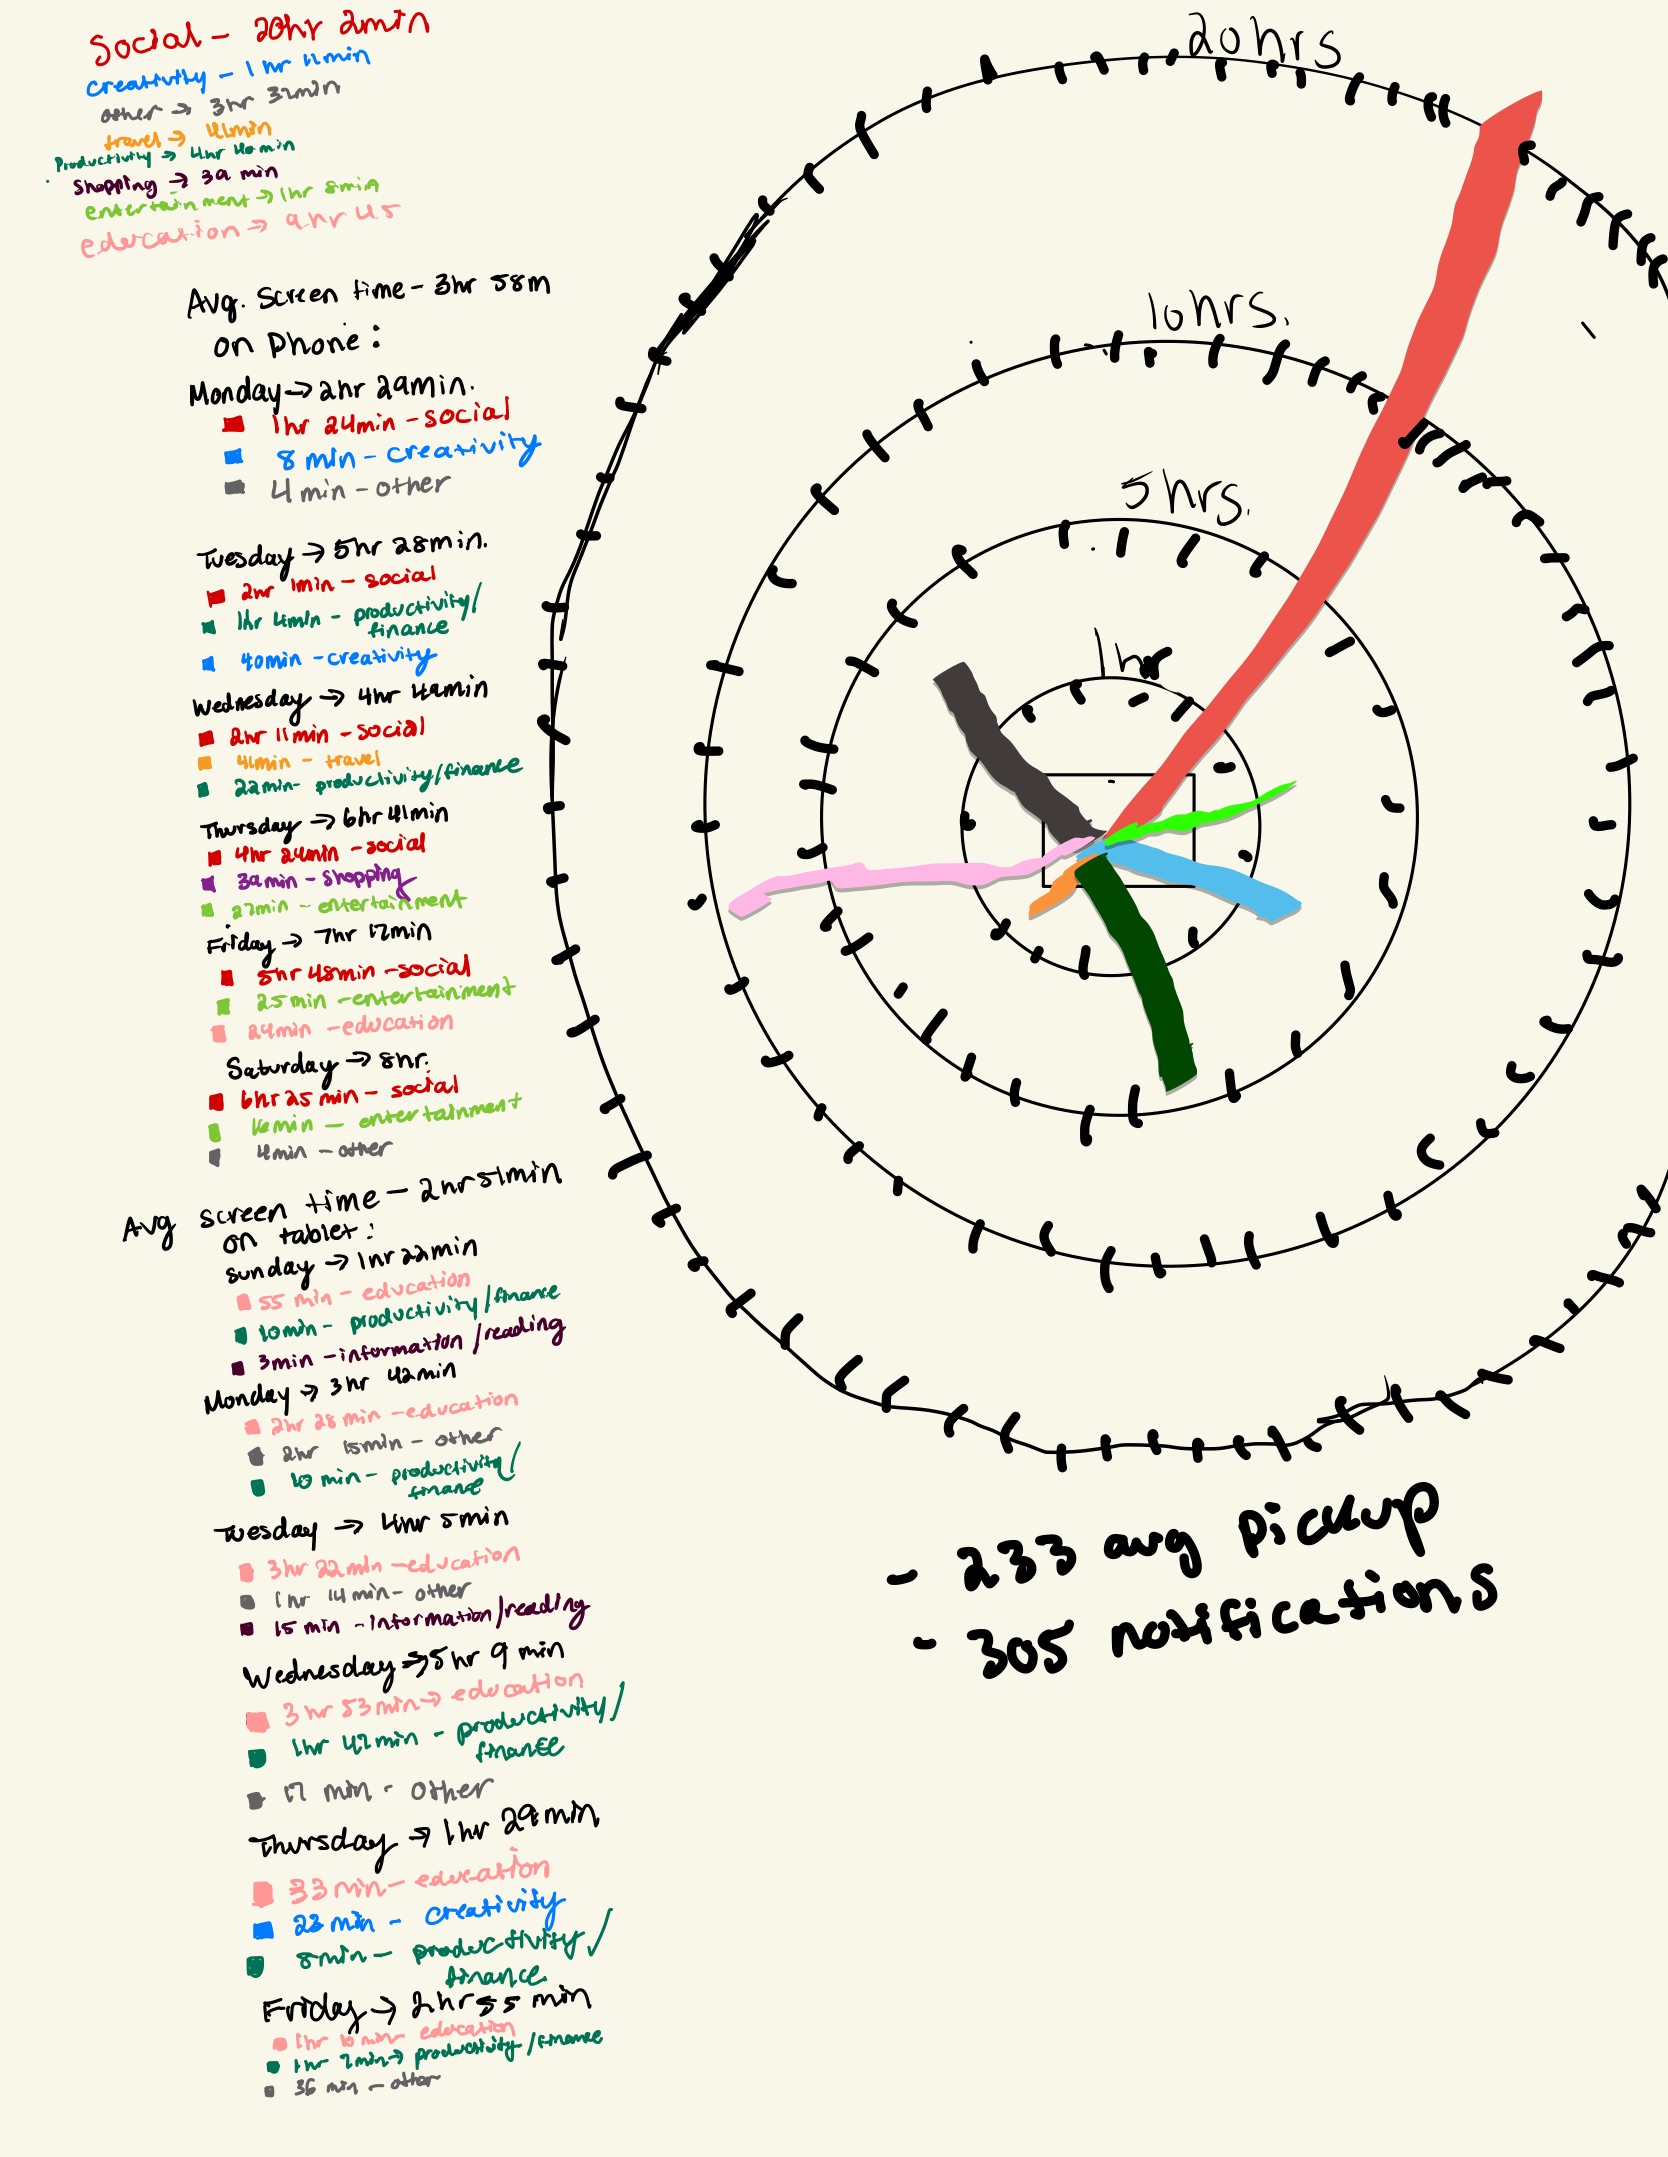 Social - 20hr 2min
creativity - 1 hr 11min
other → 3hr 32min
travel → 41min
Productivity → 4hr 40min
Shopping → 39 min
entertainment → 1hr 8min
education → 9hr 45
Avg. Screen time - 3hr 58m
on Phone:
Monday → 2hr 29min.
1hr 24min - social
8 min - creativity
4 min - other
Tuesday → 5hr 28min.
2hr 1min - social
1hr 4min - productivity/
finance
40min - creativity
Wednesday → 4hr 49min
2hr 11min - social
41min - travel
22min - productivity/finance
Thursday → 6hr 41min
4hr 24min - social
39min - shopping
27min - entertainment
Friday → 7hr 17min
5hr 48min - social
25min - entertainment
24min - education
Saturday → 8hr.
6hr 25min - social
16min - entertainment
4min - other
Avg screen time - 2hr 51min
on tablet:
Sunday → 1hr 22min
55 min - education
10min - productivity/finance
3min - information/reading
Monday → 3hr 42min
2hr 28min - education
2hr 15min - other
10 min - productivity/
finance
Tuesday → 4hr 5min
3hr 22min - education
1hr 14min - other
15 min - information/reading
Wednesday → 5hr 9 min
3 hr 53min → education
1hr 47min - productivity/
finance
17 min - other
Thursday → 1hr 29min
33min - education
23min - creativity
8min - productivity/
finance
Friday → 2hr 55 min
1hr 10min - education
1hr 7min → productivity/finance
36 min - other
20hrs
10hrs.
5hrs.
1hr
- 233 avg pickup
- 305 notifications